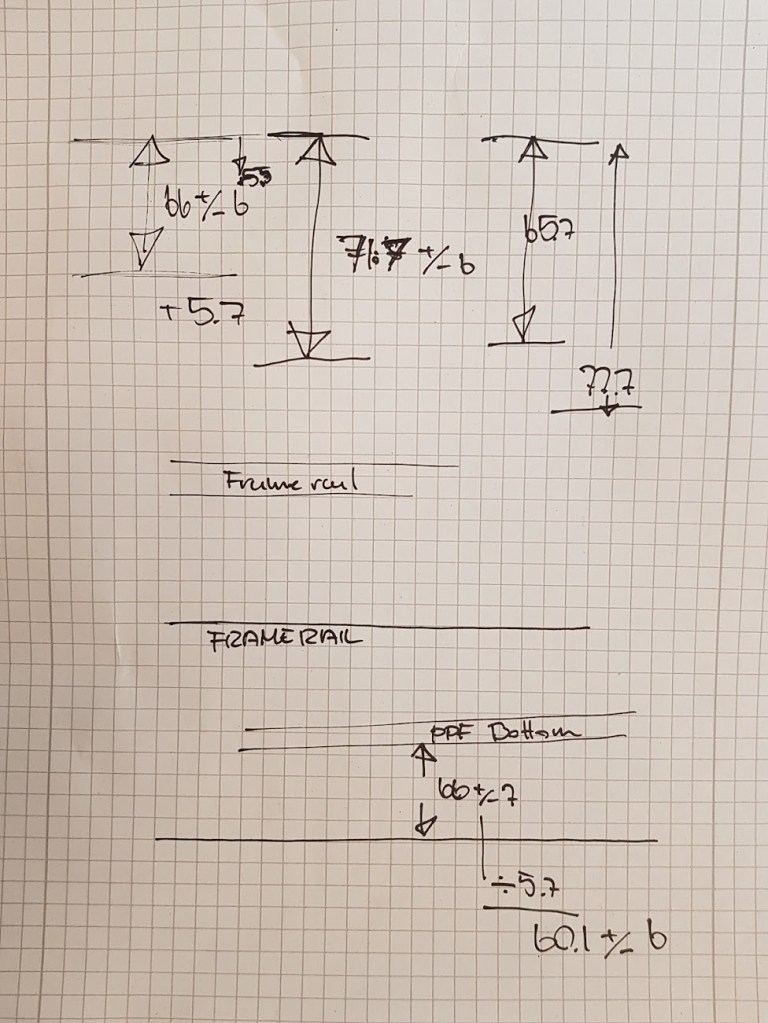 66 +/- 6
+5.7
71.7 +/- 6
65.7
77.7
Frame rail
FRAME RAIL
PPF Bottom
66 +/- 7
÷5.7
60.1 +/- 6